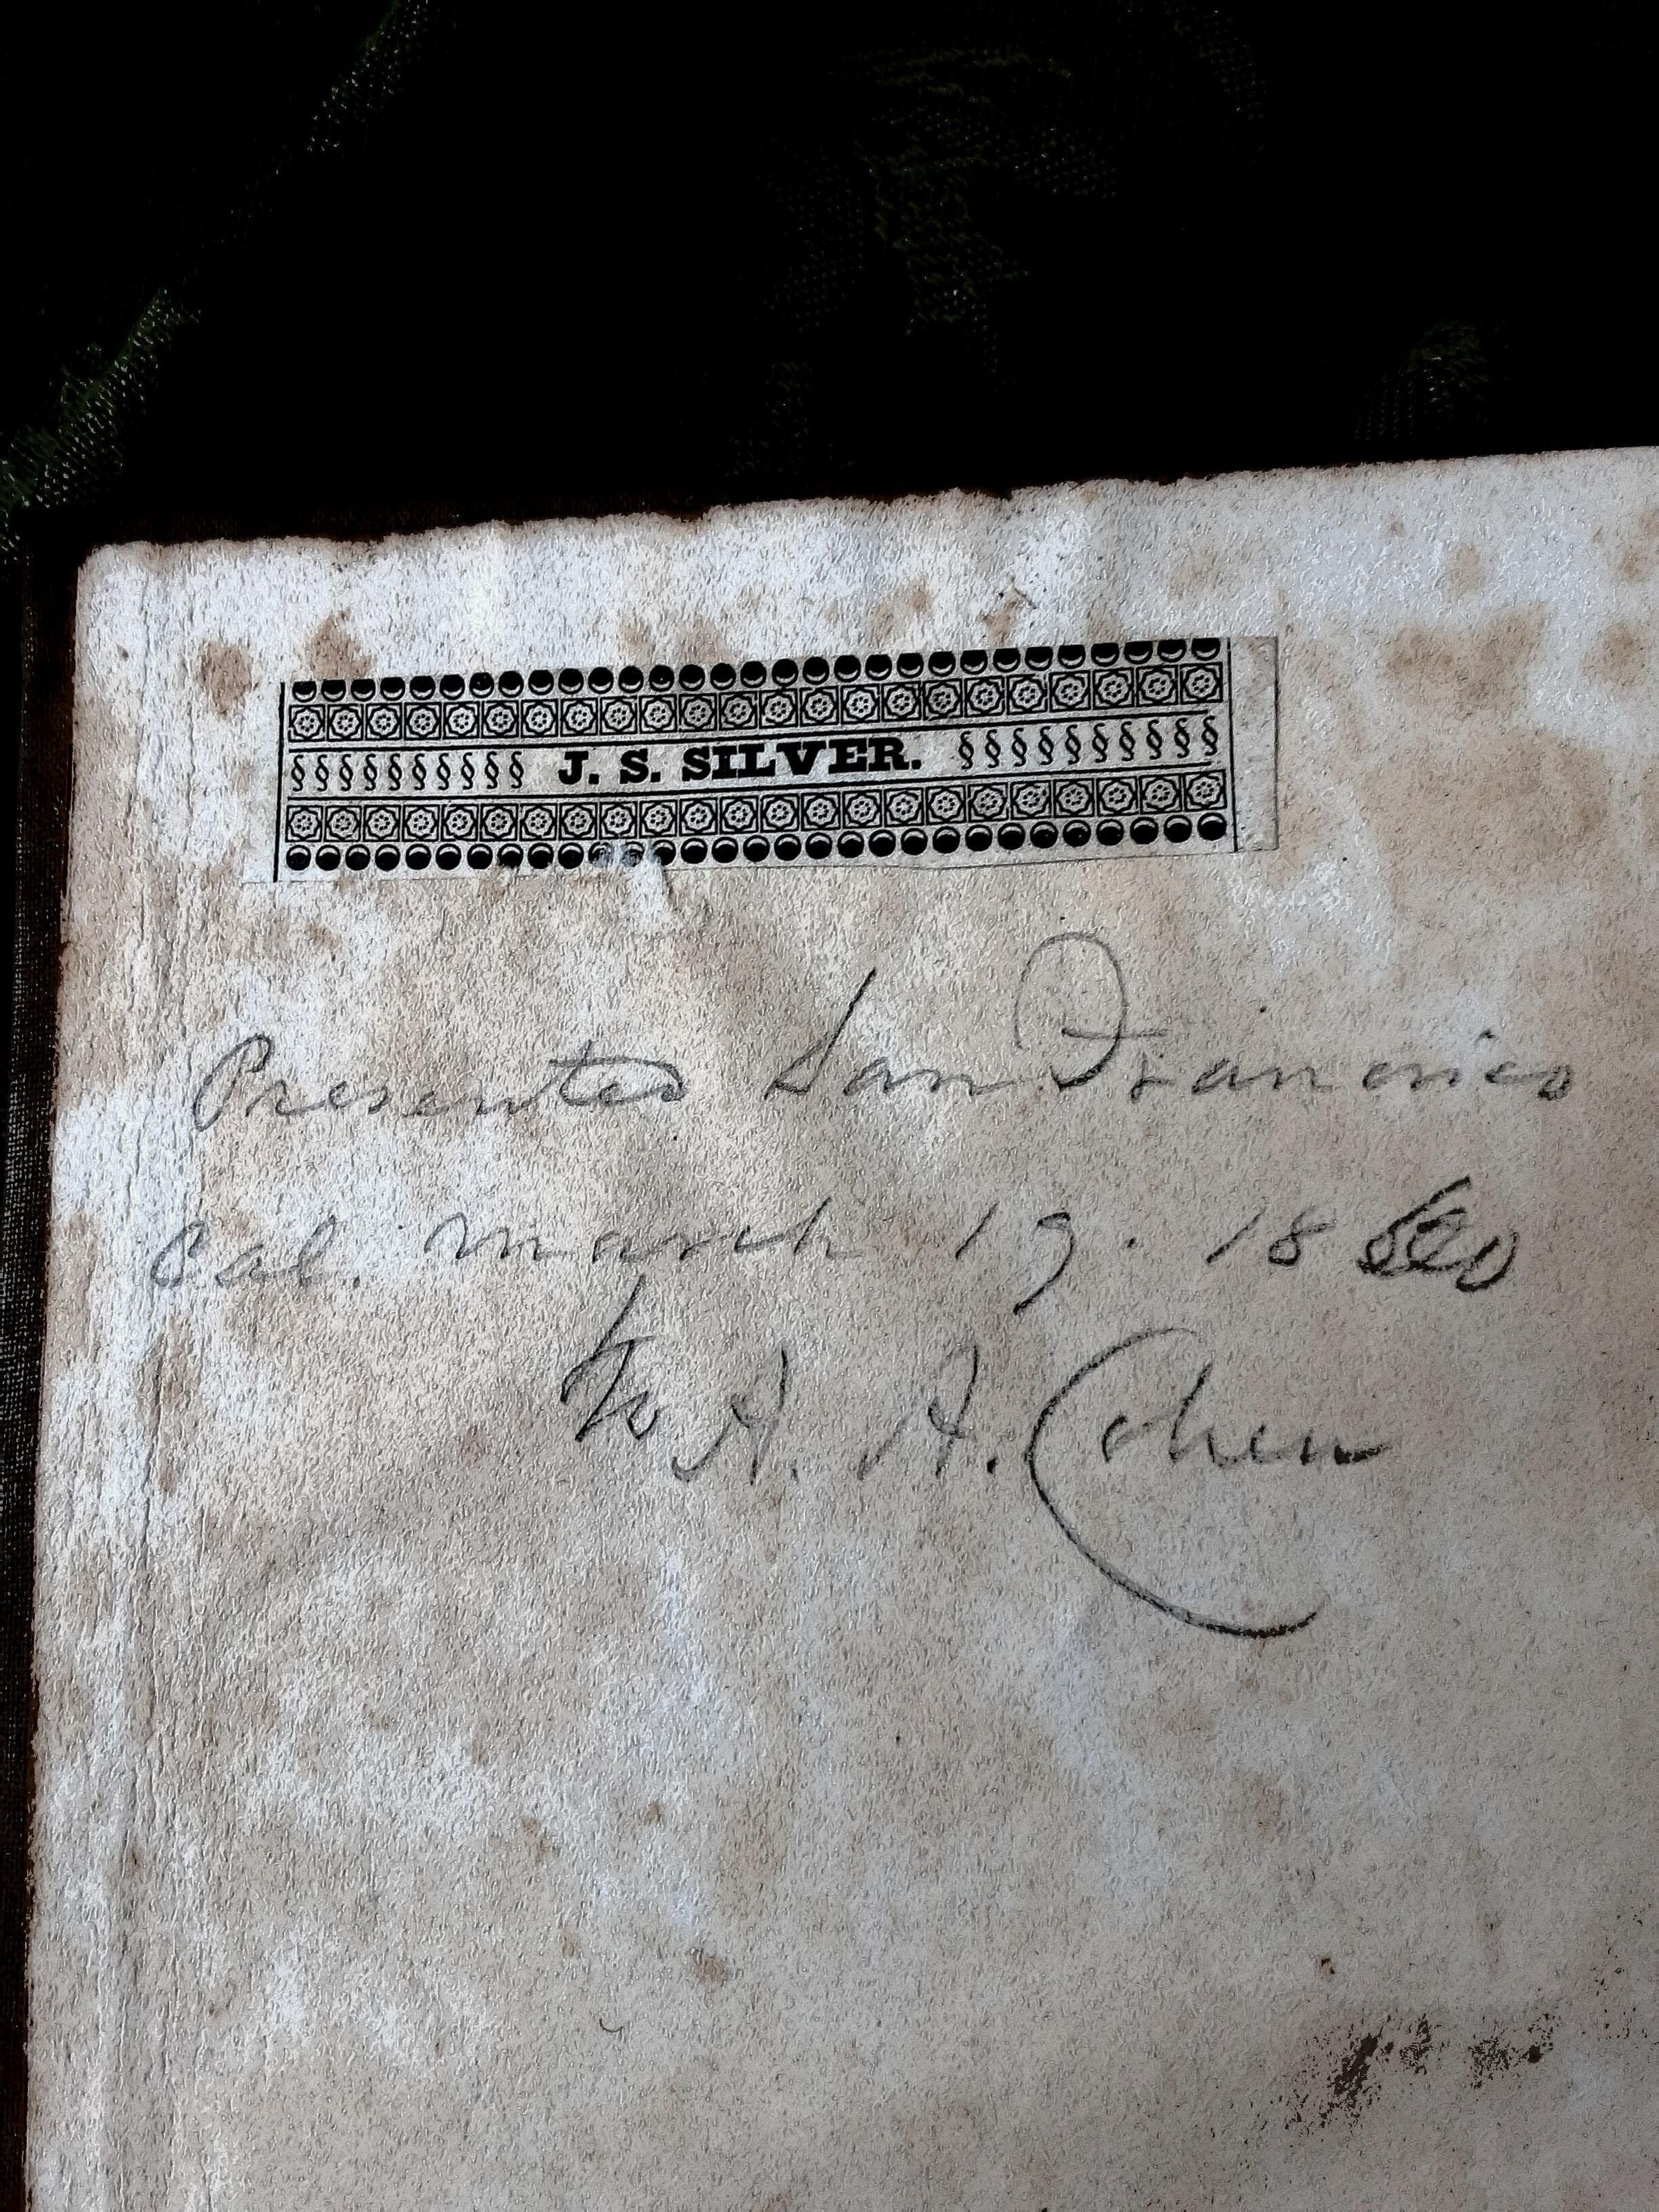 §§§§§§§§§§ J. S. SILVER. §§§§§§§§§§
Presented San Francisco
Cal. March 19. 18
To A. A. Cohen